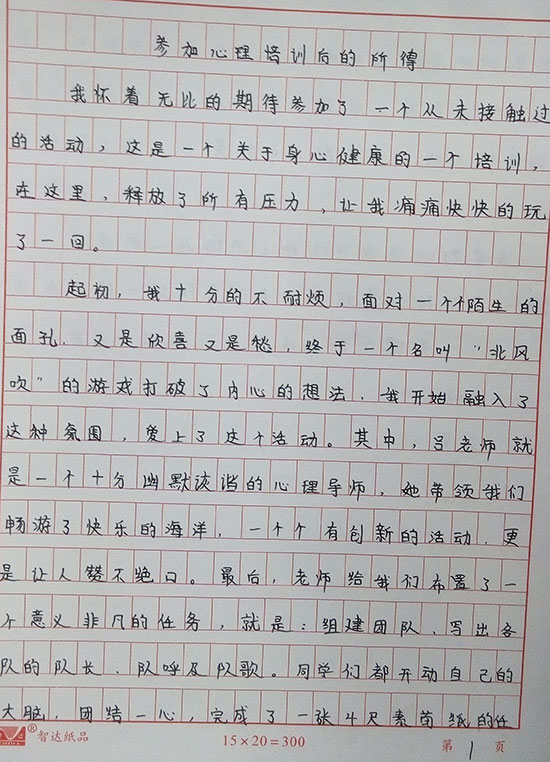 参加心理培训后的所得
我怀着无比的期待参加了一个从未接触过
的活动，这是一个关于身心健康的一个培训，
在这里，释放了所有压力，让我痛痛快快的玩
了一回。
起初，我十分的不耐烦，面对一个个陌生的
面孔，又是欣喜又是愁，终于一个名叫“北风
吹”的游戏打破了内心的想法，我开始融入了
这种氛围，爱上了这个活动。其中，吕老师就
是一个十分幽默诙谐的心理导师，她带领我们
畅游了快乐的海洋，一个个有创新的活动，更
是让人赞不绝口。最后，老师给我们布置了一
个意义非凡的任务，就是：组建团队、写出各
队的队长、队呼及队歌。同学们都开动自己的
大脑，团结一心，完成了一张4尺素茵纸的任
®智达纸品
15×20=300
第1页